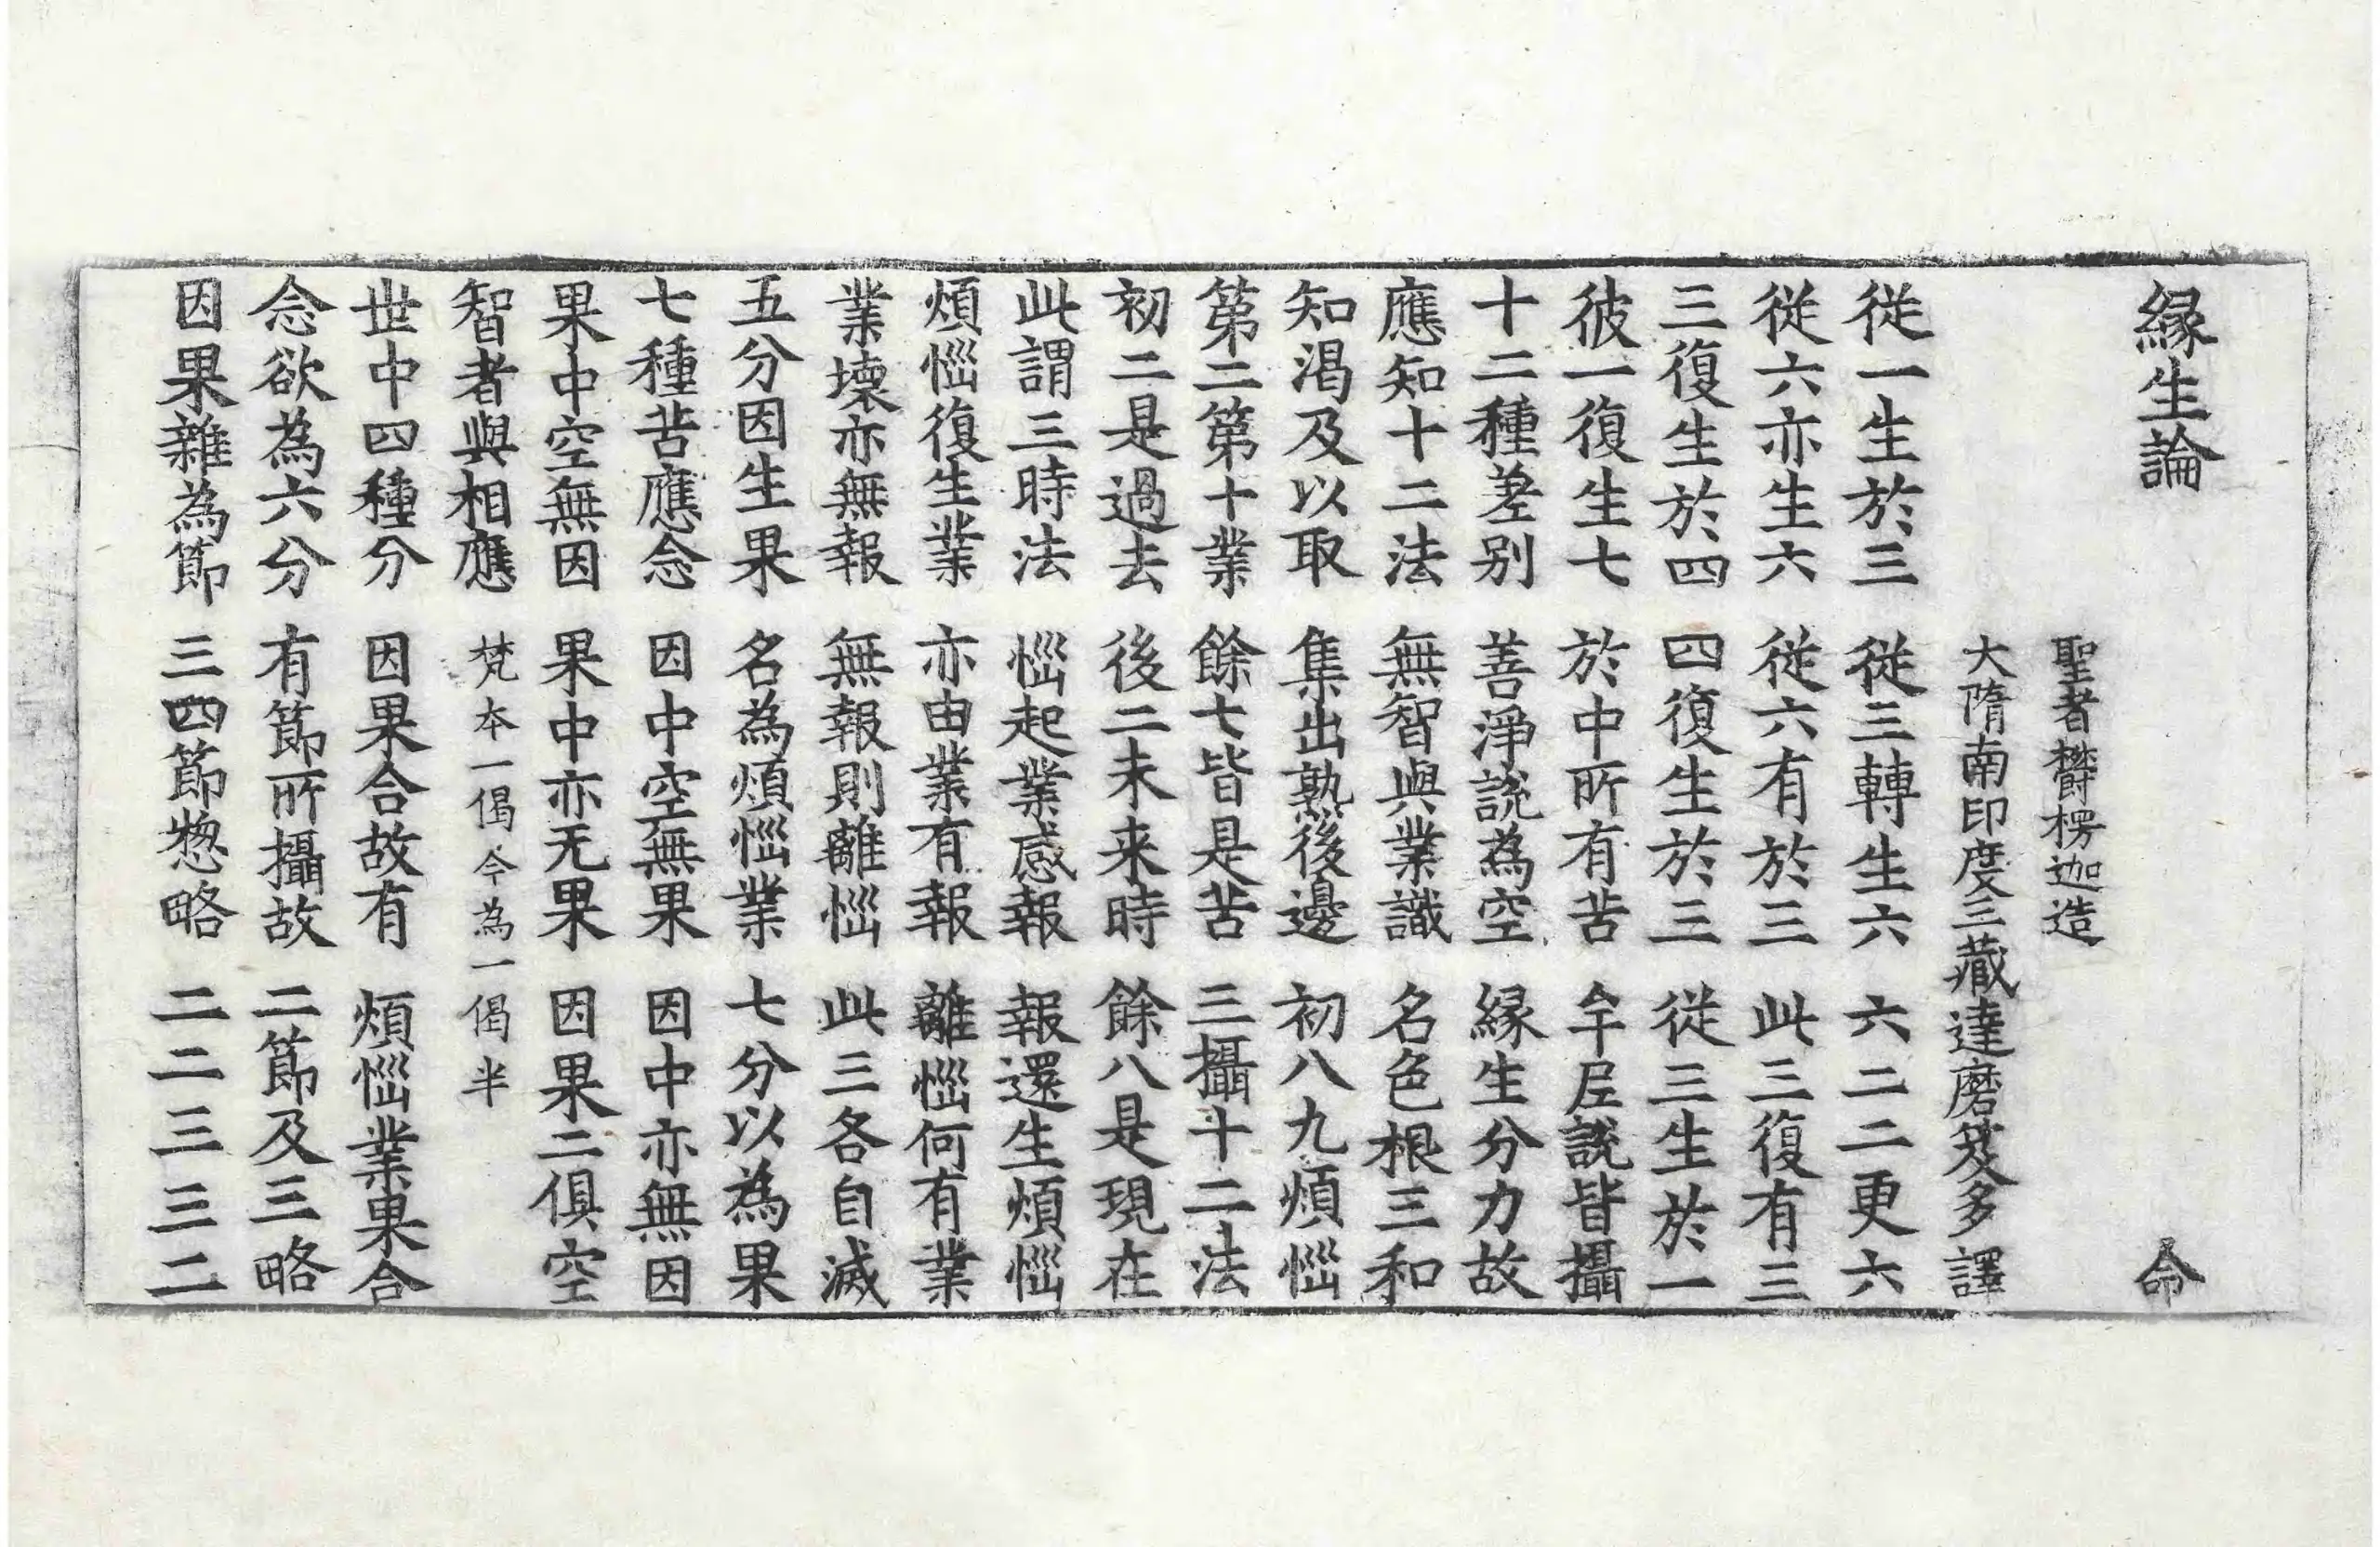 緣生論 命
聖者欝楞迦造
大隋南印度三藏達磨笈多譯
從一生於三 從三轉生六 六二二更六
從六亦生六 從六有於三 此三復有三
三復生於四 四復生於三 從三生於一
彼一復生七 於中所有苦 牟𡰱說皆攝
十二種差別 善淨說為空 緣生分力故
應知十二法 無智與業識 名色根三和
知渴及以取 集出熟後邊 初八九煩惱
第二第十業 餘七皆是苦 三攝十二法
初二是過去 後二未来時 餘八是現在
此謂三時法 惱起業感報 報還生煩惱
煩惱復生業 亦由業有報 離惱何有業
業壞亦無報 無報則離惱 此三各自滅
五分因生果 名為煩惱業 七分以為果
七種苦應念 因中空無果 因中亦無因
果中空無因 果中亦无果 因果二俱空
智者與相應 梵本一偈今為一偈半
世中四種分 因果合故有 煩惱業果合
念欲為六分 有節所攝故 二節及三略
因果雜為節 三四節惣略 二二三三二